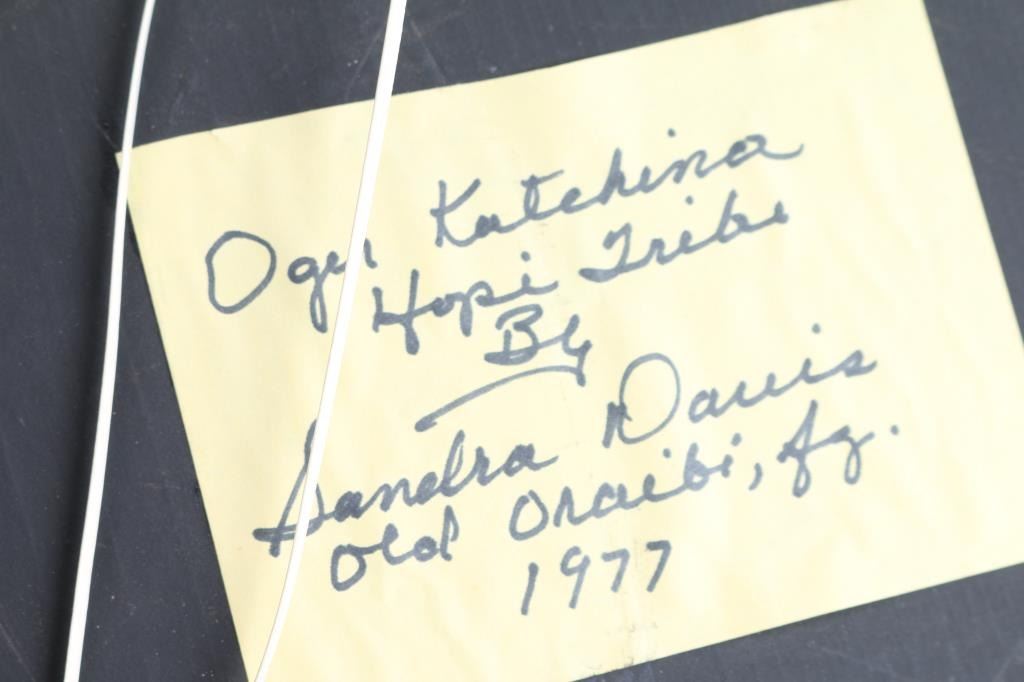 Oger Katchina
Hopi Tribe
By
Sandra Davis
Old Oraibi, Az.
1977